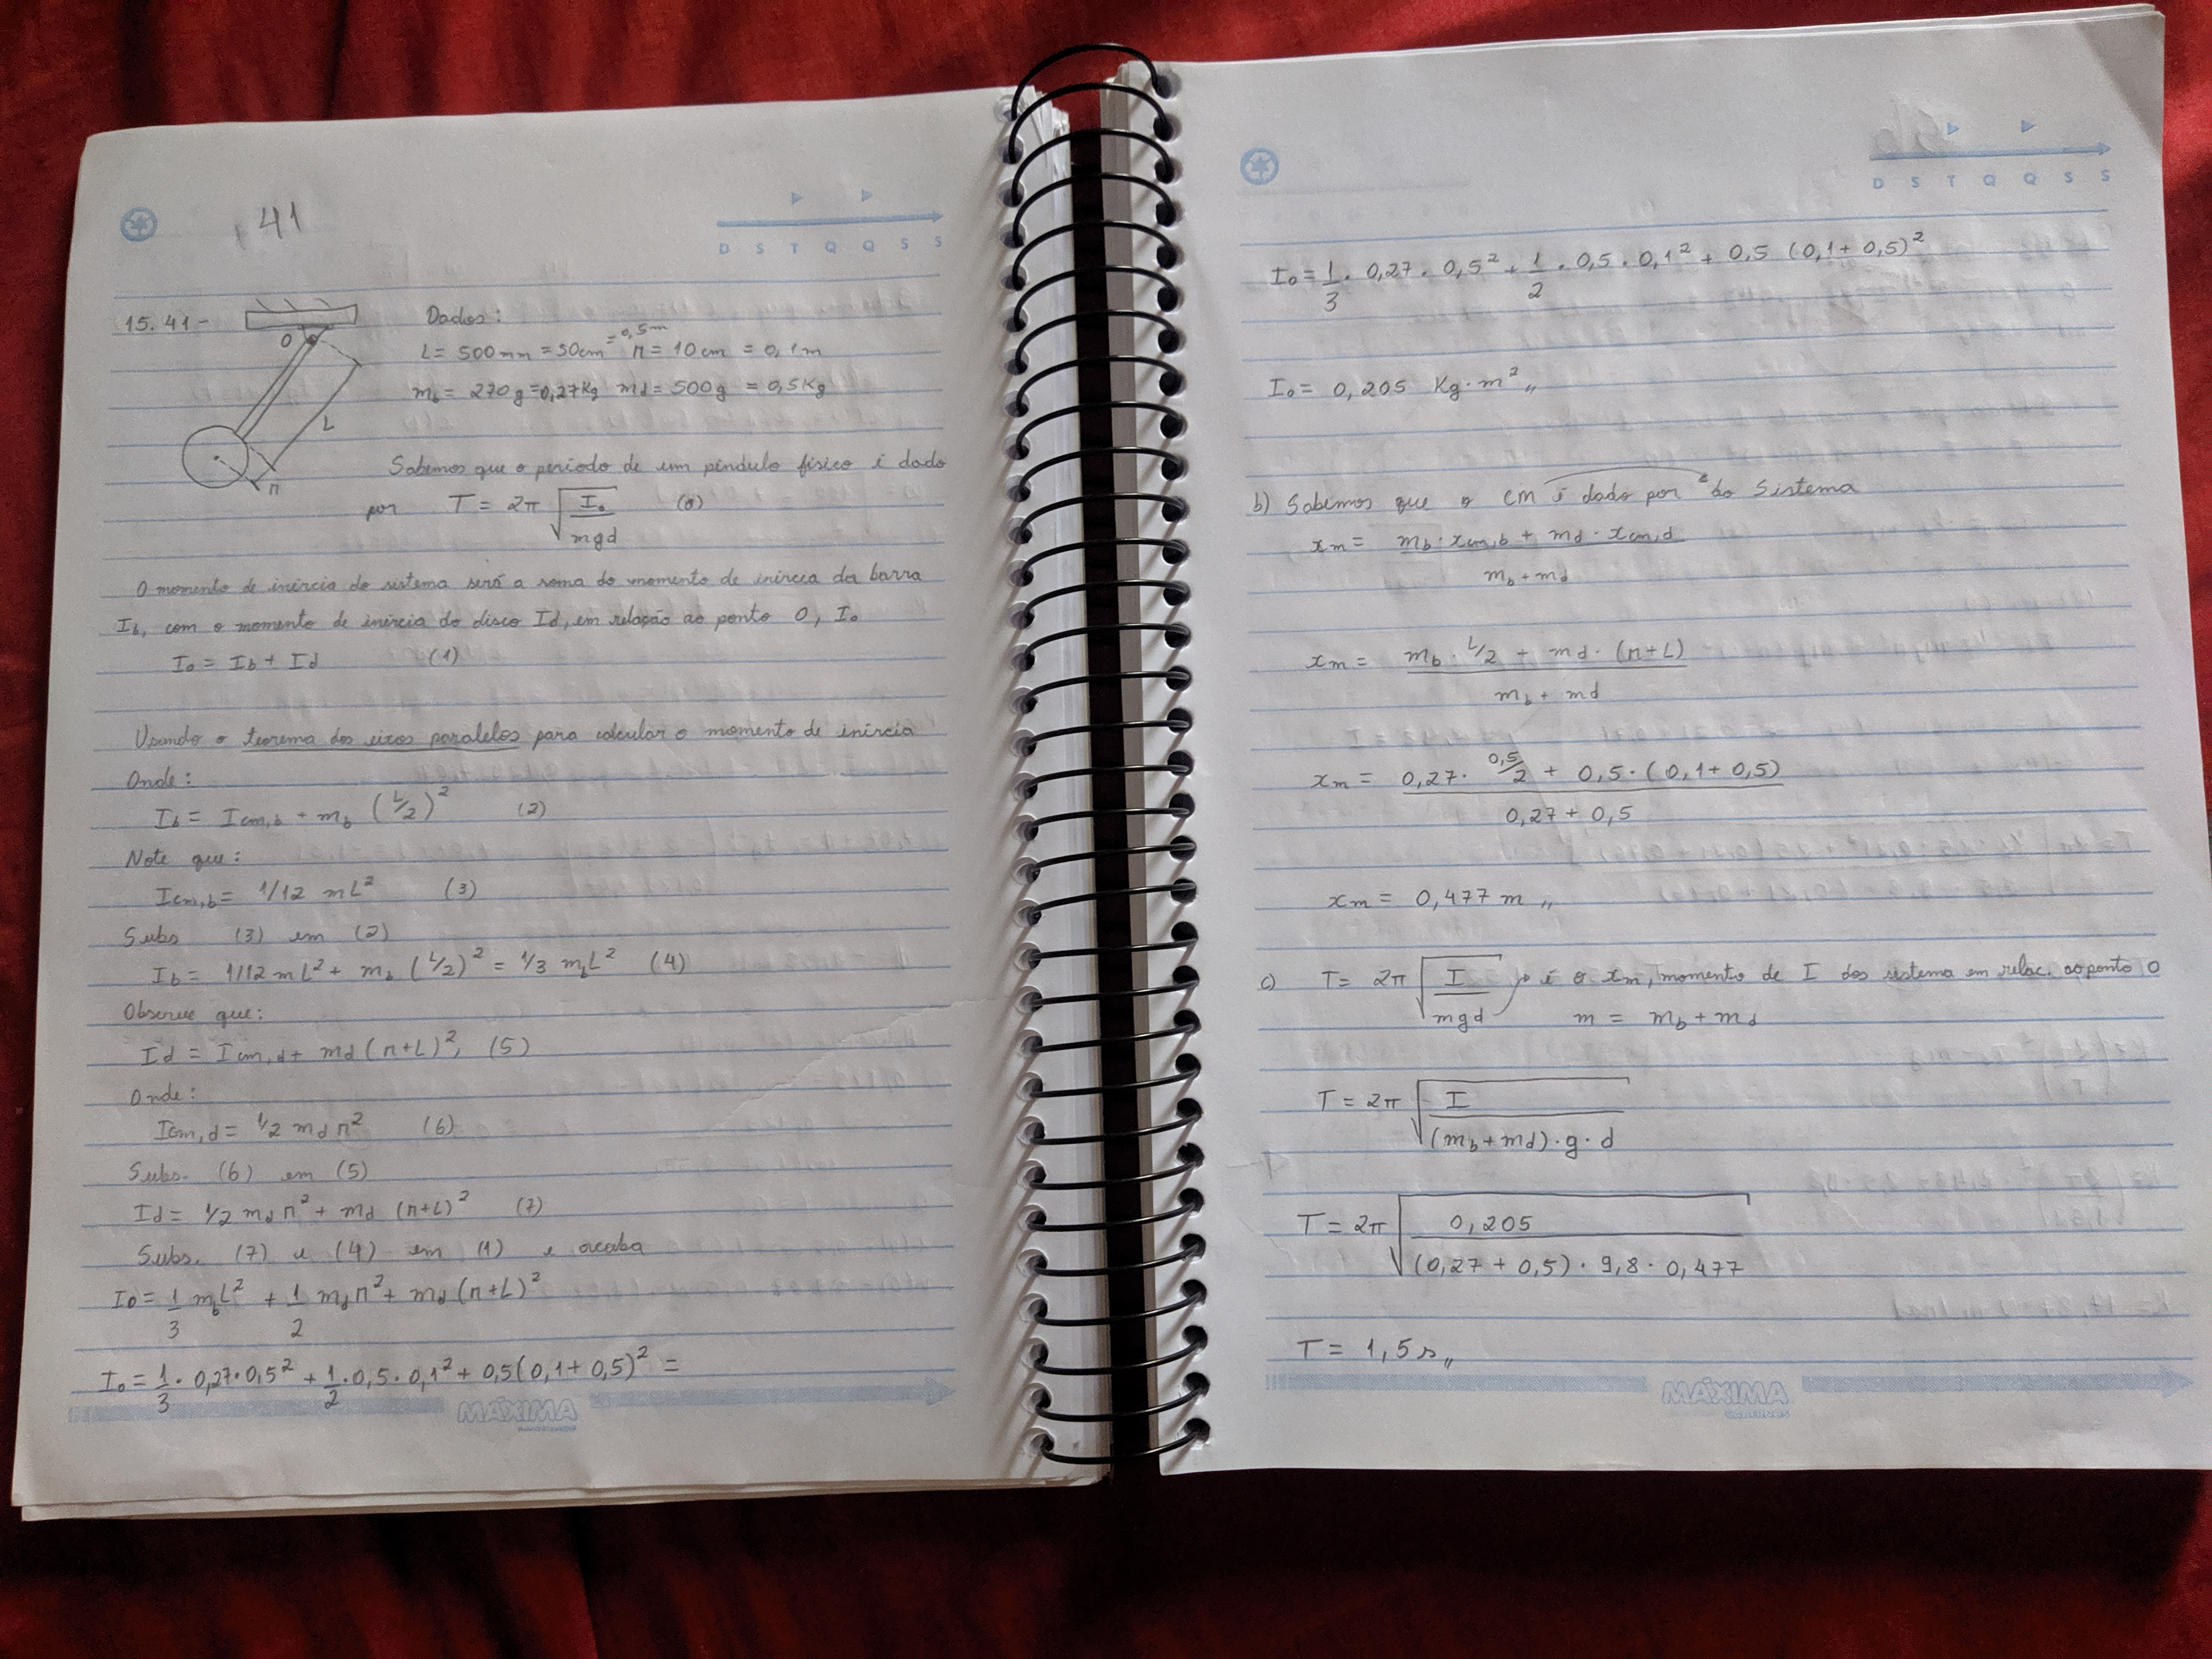 41
D S T Q Q S S
15.41-
Dados:
L = 500mm = 50cm = 0,5m r = 10cm = 0,1m
mb = 270g = 0,27Kg md = 500g = 0,5Kg
O
L
r
Sabemos que o período de um pêndulo físico é dado
por T = 2π √(I₀/mgd) (0)
O momento de inércia do sistema será a soma do momento de inércia da barra
Ib, com o momento de inércia do disco Id, em relação ao ponto O, I₀
I₀ = Ib + Id (1)
Usando o teorema dos eixos paralelos para calcular o momento de inércia
Onde:
Ib = Icm,b + mb (L/2)² (2)
Note que:
Icm,b = 1/12 mL² (3)
Subs (3) em (2)
Ib = 1/12 mL² + mb (L/2)² = 1/3 mbL² (4)
Observe que:
Id = Icm,d + md (r+L)² (5)
Onde:
Icm,d = 1/2 md r² (6)
Subs. (6) em (5)
Id = 1/2 md r² + md (r+L)² (7)
Subs. (7) e (4) em (1) e acaba
I₀ = 1/3 mbL² + 1/2 mdr² + md (r+L)²
I₀ = 1/3 · 0,27 · 0,5² + 1/2 · 0,5 · 0,1² + 0,5(0,1 + 0,5)² =
MÁXIMA
D S T Q Q S S
I₀ = 1/3 · 0,27 · 0,5² + 1/2 · 0,5 · 0,1² + 0,5 (0,1 + 0,5)²
I₀ = 0,205 Kg·m² „
b) Sabemos que o cm é dado por do sistema
xm = (mb · xcm,b + md · xcm,d)/(mb + md)
xm = (mb · L/2 + md · (r+L))/(mb + md)
xm = (0,27 · 0,5/2 + 0,5 · (0,1 + 0,5))/(0,27 + 0,5)
xm = 0,477 m „
c) T = 2π √(I/mgd) → é o xm, momento de I dos sistema em relac. ao ponto O
m = mb + md
T = 2π √(I/((mb + md) · g · d))
T = 2π √(0,205/((0,27 + 0,5) · 9,8 · 0,477))
T = 1,5 s „
MÁXIMA